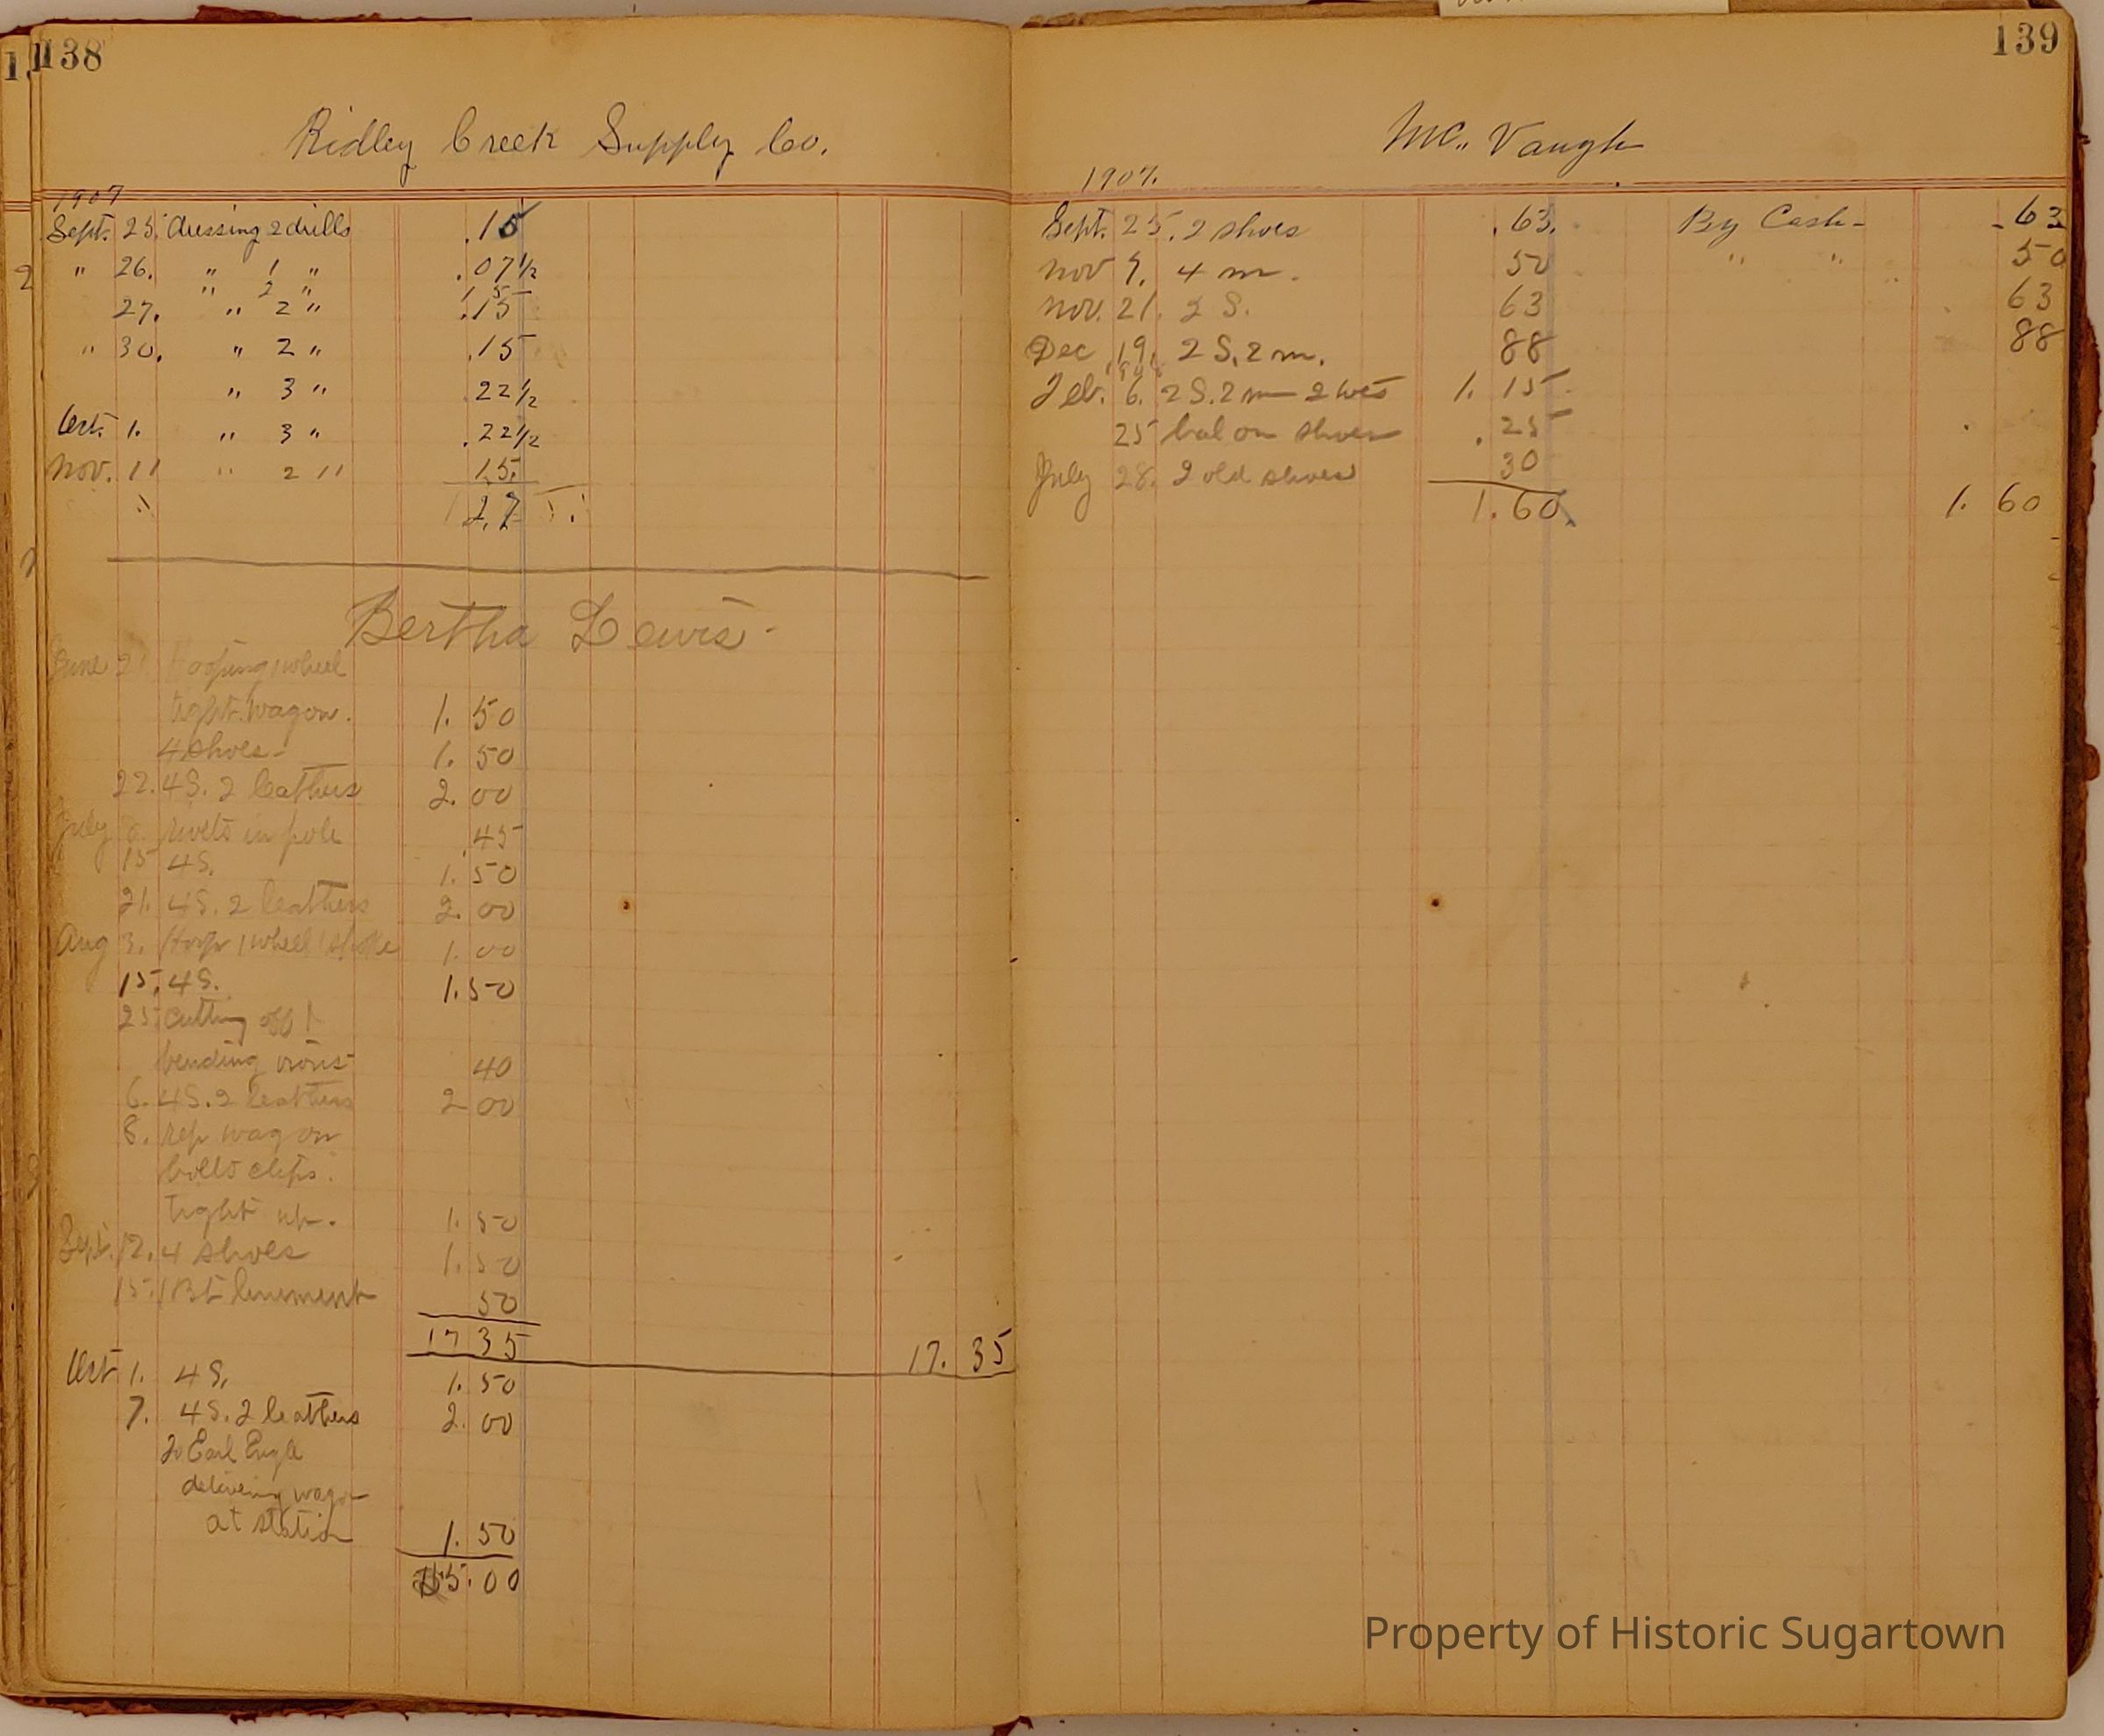 138
Ridley Creek Supply Co.
1907
Sept. 25. dressing 2 drills .15
" 26. " 1 " .07 1/2
" 2 " 15
27. " 2 " .15
" 30. " 2 " .15
" 3 " .22 1/2
Oct. 1. " 3 " .22 1/2
Nov. 11 " 2 " 15.
1 27
Bertha Lewis-
June 2 Hooping 1 wheel
tight. wagon. 1. 50
4 shoes- 1. 50
22. 4 S. 2 leathers 2. 00
July rivets in pole .45
15 4 S. 1. 50
21. 4 S. 2 leathers 2. 00
Aug 3. Hoop 1 wheel 1 spoke 1. 00
15. 4 S. 1. 50
25. Cutting off &
bending irons 40
6. 4 S. 2 leathers 2 00
8. Rep wagon
bolts clips.
tight up. 1. 50
Sept. 12. 4 shoes 1. 50
15. 1 Bt linement 50
17 35 17. 35
Oct 1. 4 S. 1. 50
7. 4 S. 2 leathers 2. 00
Earl Engle
delivering wagon
at station 1. 50
5.00
139
Mc. Vaugh
1907.
Sept. 25. 2 shoes .63. By Cash- .63
Nov 9. 4 m. 50 " " 50
Nov. 21. 2 S. 63 63
Dec 19. 2 S. 2 m. 88 88
1908
Feb. 6. 2 S. 2 m 2 1. 15
25 bal on shoes .25
July 28. 2 old shoes 30
1.60 1. 60
Property of Historic Sugartown